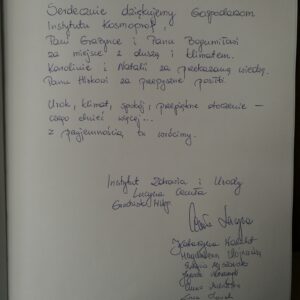 Serdecznie dziękujemy Gospodarzom
Instytutu Kosmoprof,
Pani Grażynce i Panu Bogumiłowi
za miejsce z duszą i klimatem.
Karolinie i Natalii za przekazaną wiedzę.
Panu Mirkowi za przepyszne posiłki.
Urok, klimat, spokój, przepiękne otoczenie –
czego chcieć więcej...
z przyjemnością tu wrócimy.
Instytut Zdrowia i Urody
Lucyna
Lucyna
Katarzyna
Magdalena
Anna